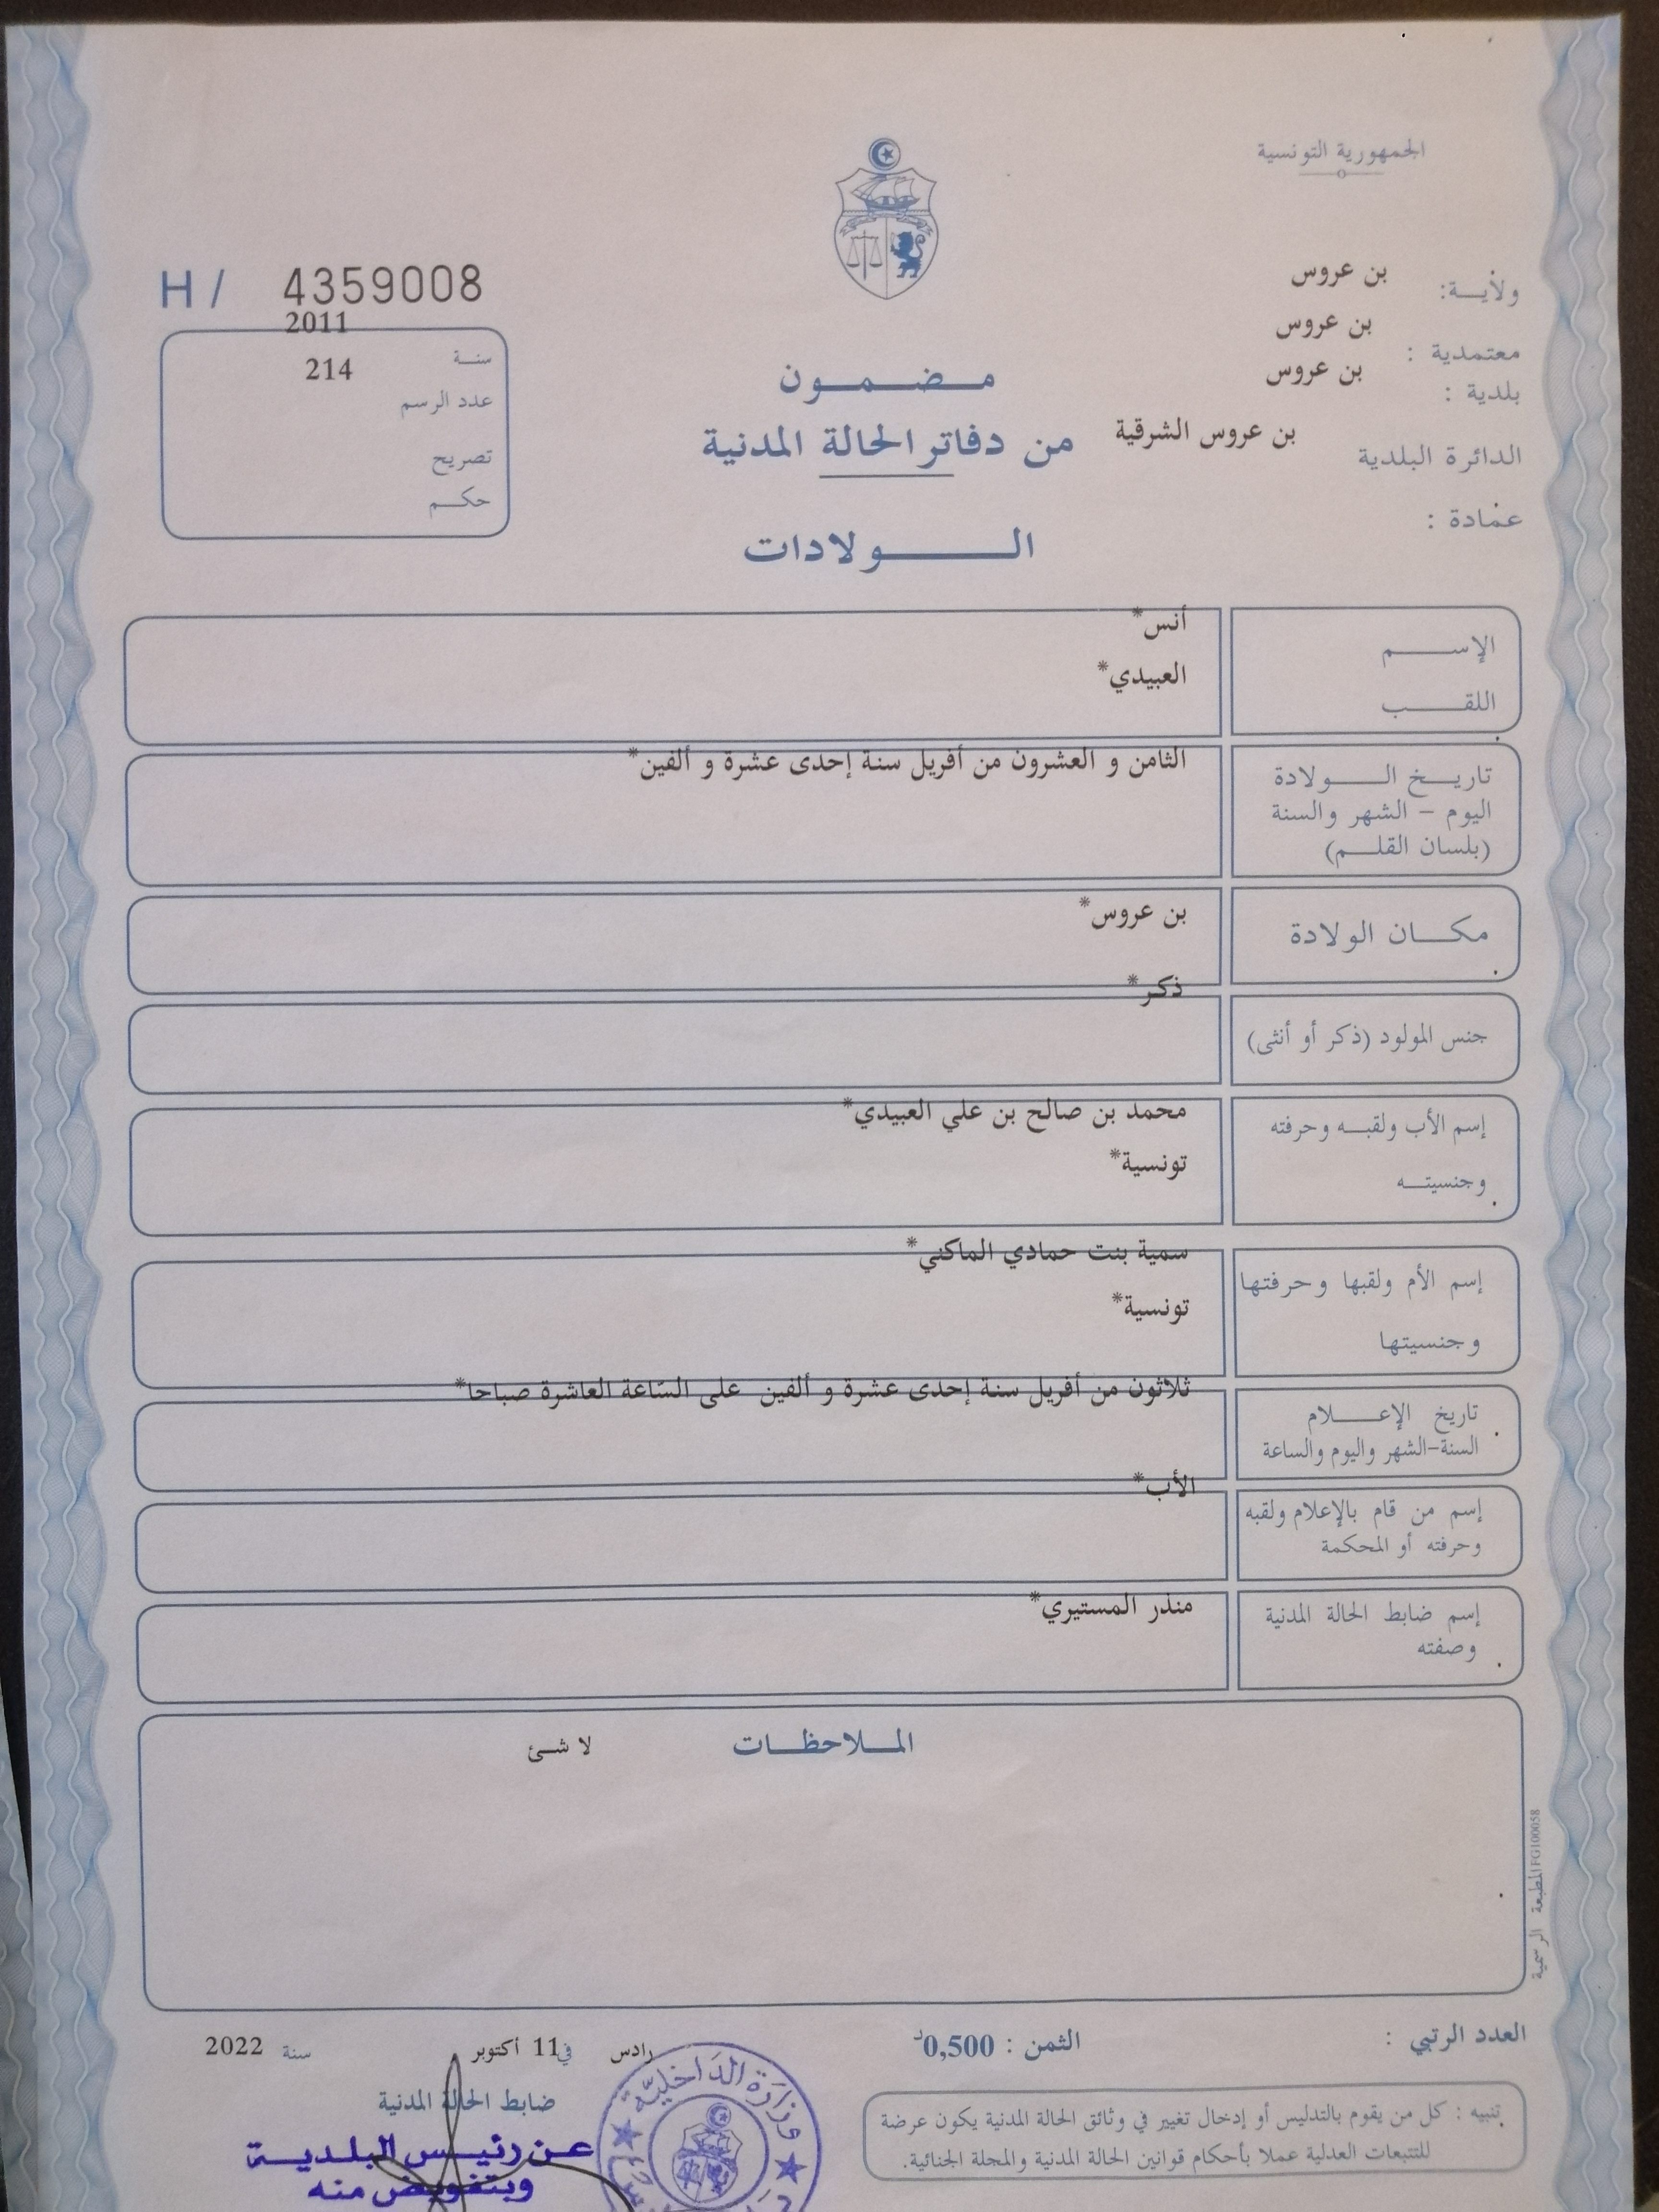 الجمهورية التونسية
ولاية: بن عروس
معتمدية : بن عروس
بلدية : بن عروس
الدائرة البلدية بن عروس الشرقية
عمادة :
H / 4359008
سنة 2011
عدد الرسم 214
تصريح
حكم
مضمون
من دفاتر الحالة المدنية
الولادات
الإسم أنس*
اللقب العبيدي*
تاريخ الولادة الثامن و العشرون من أفريل سنة إحدى عشرة و ألفين*
اليوم - الشهر والسنة
(بلسان القلم)
مكان الولادة بن عروس*
جنس المولود (ذكر أو أنثى) ذكر*
إسم الأب ولقبه وحرفته محمد بن صالح بن علي العبيدي*
وجنسيته تونسية*
إسم الأم ولقبها وحرفتها سمية بنت حمادي الماكني*
وجنسيتها تونسية*
تاريخ الإعلام ثلاثون من أفريل سنة إحدى عشرة و ألفين على الساعة العاشرة صباحا*
السنة-الشهر واليوم والساعة
إسم من قام بالإعلام ولقبه الأب*
وحرفته أو المحكمة
إسم ضابط الحالة المدنية منذر المستيري*
وصفته
الملاحظات لا شئ
المطبعة الرسمية FG100058
العدد الرتبي :
الثمن : 0,500د
رادس في 11 أكتوبر سنة 2022
ضابط الحالة المدنية
عن رئيس البلدية
وبتفويض منه
وزارة الداخلية
تنبيه : كل من يقوم بالتدليس أو إدخال تغيير في وثائق الحالة المدنية يكون عرضة
للتتبعات العدلية عملا بأحكام قوانين الحالة المدنية والمجلة الجنائية.